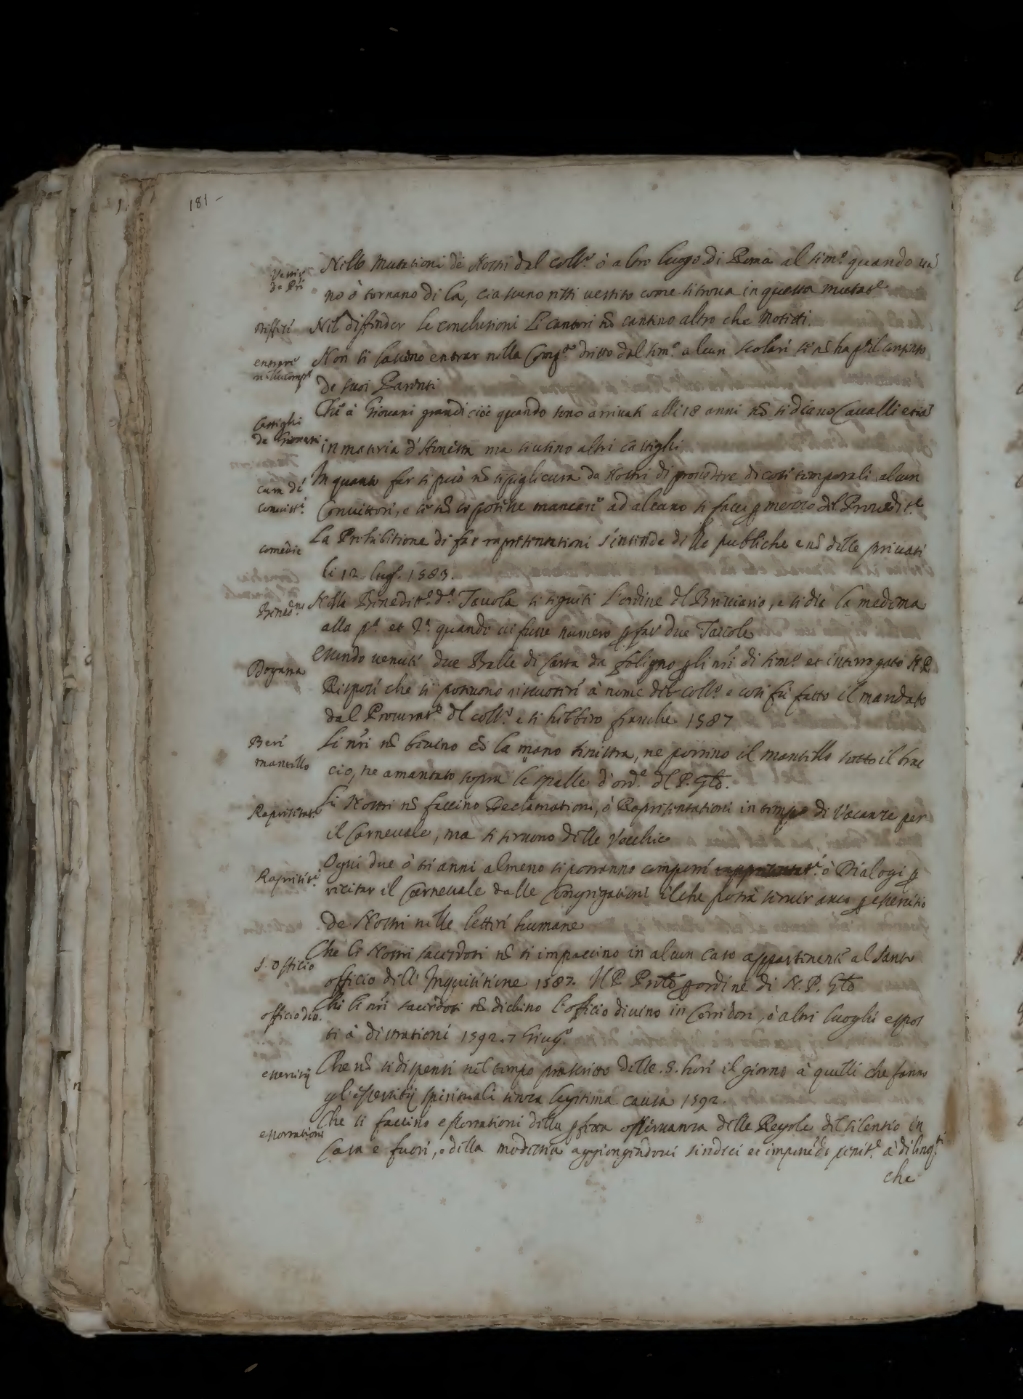 181
Vestir de Nri
Nelle Mutationi de Nostri dal Coll.º ò altro luogo di Roma al Sem.º quando van
no ò tornano di la, ciascuno resti vestito come si trova in questa mutat.e
Nel difender le conclusioni li cantori nō cantino altro che Motetti.
entrare nella comp.a
Non si faccino entrar nella Cong.ne dritto dal Sem.º alcun scolare se nō ha pª il consenso
de suoi Parenti
Castighi de Giovani
Che à Giovani grandi cioè quando sono arrivati alli 18 anni nō si diano Cavalli etiā
in materia d'Honestà ma si usino altri castighi
cura di convitt.i
In quanto far si può nō si pigli cura da Nostri di provedere di cose temporali alcun
Convittore, e se nō si potesse mancare ad alcuno si facci p mezzo del Proved.re
comedie
La Prohibitione di far rapresentationi s'intende delle publiche e nō delle private
li 12 Lug. 1583.
Bened.ne
Nella Benedit.ne d. Tavola si seguiti l'ordine del Breviario, e si dia la medema
alla pª et 2ª quando vi fusse numero p far due Tavole
Dogana
Essendo venute due Balle di carta da Foligno p li nri di Sem.º et interrogato N. P.
Rispose che si potevono riscuotere à nome del Coll.º e così fù fatto il mandato
dal Procurat.re del coll.º e si hebbero franche 1587
Beri mantello
Li nri nō tenino cō la mano sinistra, ne portino il mantello sotto il brac
cio, ne amantato sopra le spalle d'ord.e del P. Gñle.
Rapresentat.
Li Nostri nō faccino Declamationi, ò Rapresentationi in tempo di Vacanze per
il Carnevale, ma si servono delle Vecchie
Rapresēt.e
Ogni due ò tre anni almeno si potranno comporre ò Dialogi p
recitar il Carnevale dalle Congregationi il che potrà servir anco p essercitio
de Nostri nelle lettere humane
S. Officio
Che li Nostri sacerdoti nō si impaccino in alcun caso appartenente al Santo
officio dell'Inquisitione 1587. Il P. Prñle p ordine di N. P. Gñle
officio div.
Che li nri sacerdoti nō dichino l'officio divino in Corridori, ò altri luoghi espos
ti à distrationi 1592. 7 Giug.º
essercitij
Che nō si dispensi nel tempo prescritto delle 5. hore il giorno à quelli che fanno
gl'essercitij spirituali senza legitima causa 1592.
essortationi
Che si faccino essortationi della p̄fetta osservanza delle Regole del silentio in
Casa e fuori, e della modestia aggiongendovi sindici et imponēdo penit.e à delinq.ti
che